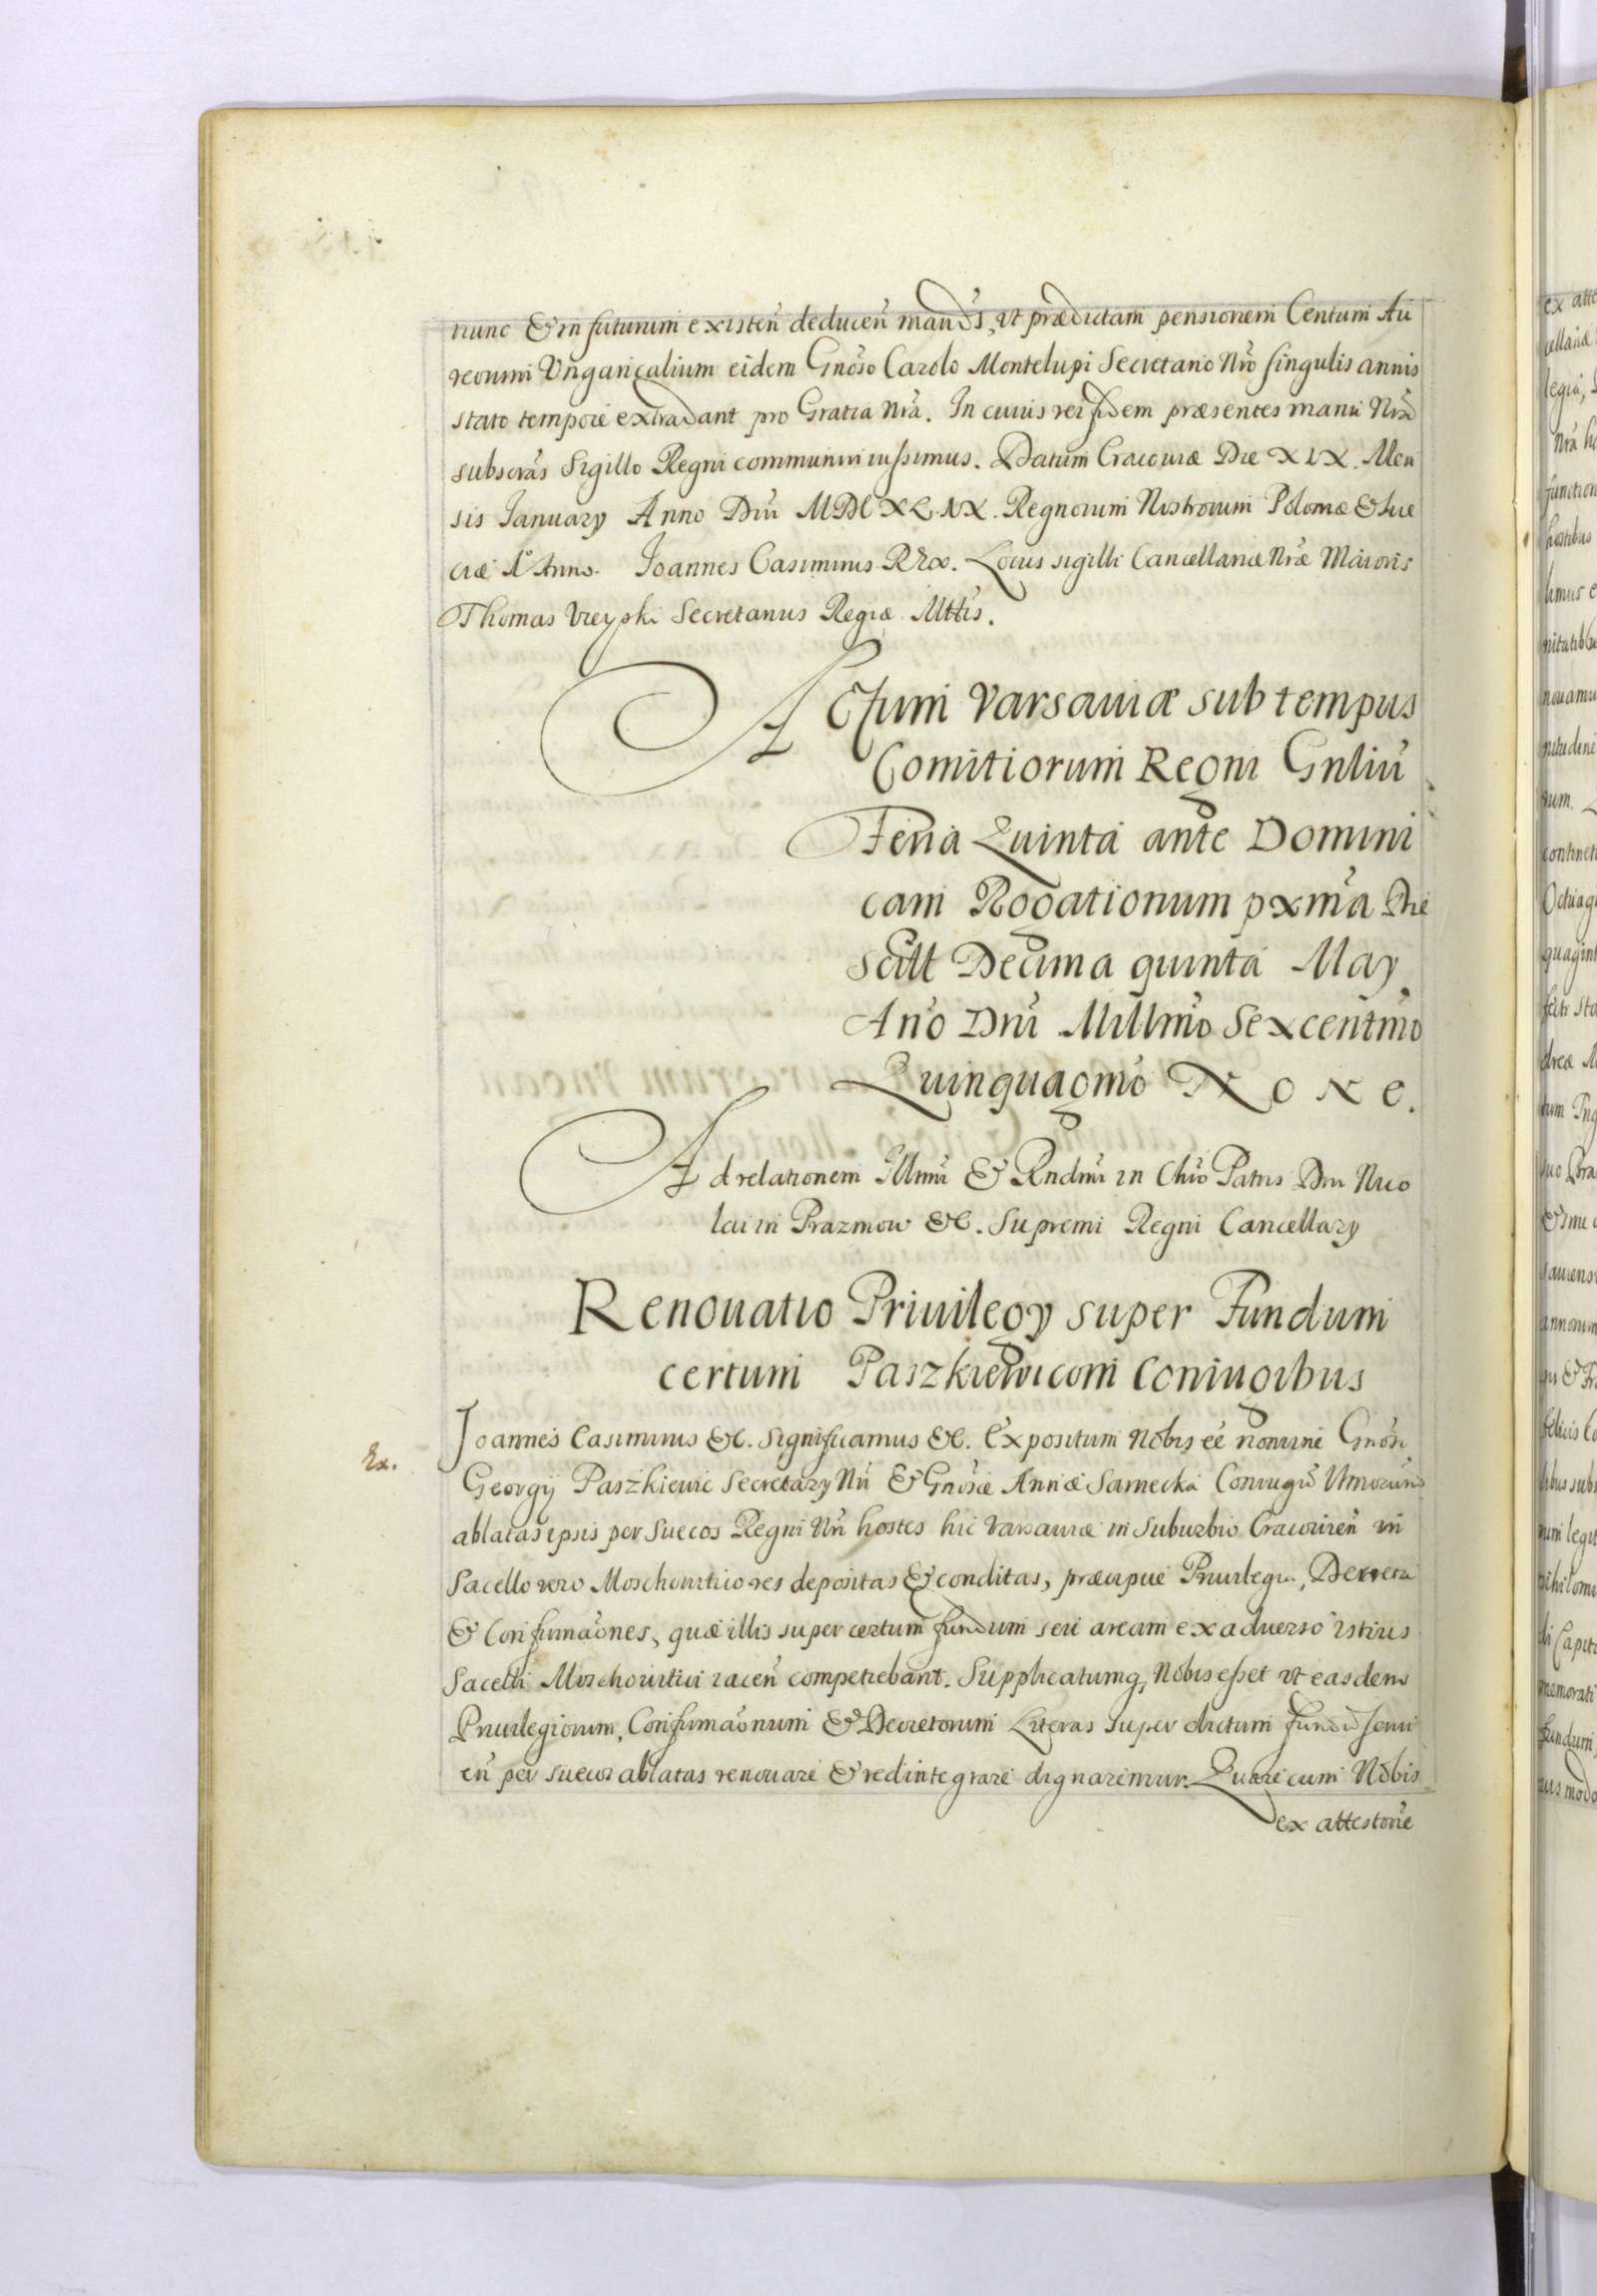 nunc & in futurum existen̄ deducen̄ mandās, vt prædictam pensionem Centum Au
reorum Vngaricalium eidem Gnōso Carolo Montelupi Secretario Nrō singulis annis
stato tempore extradant pro Gratia Nrā. In cuius rei fidem præsentes manu Nrā
subscrās Sigillo Regni communiri iussimus. Datum Cracouiæ Die XIX. Men
sis January Anno Dnī MDCXLIX. Regnorum Nostrorum Poloniæ & Sue
ciæ 1º Anno. Joannes Casimirus Rex. Locus sigilli Cancellariæ Nræ Maioris
Thomas Vieyski Secretarius Regiæ Mttis.
Actum Varsauiæ sub tempus
Comitiorum Regni Gnliū
Feria Quinta ante Domini
cam Rogationum pxmā Die
Scilt Decima quinta May
Anō Dnī Millmō Sexcentmō
Quinquagmō None.
Ad relationem Illmī & Rndmī in Chrō Patris Dnī Nico
lai in Prazmow &c. Supremi Regni Cancellary
Renouatio Priuilegy super Fundum
certum Paszkiewicom Coniugibus
Ex.
Joannes Casimirus &c. Significamus &c. Expositum Nobis eē nomine Gnōsi
Georgij Paszkiewic Secretary Nrī & Gnōsæ Annæ Sarnecka Coniugū
ablatas ipsis per Suecos Regni Nrī hostes hic Varsauiæ in Suburbio Cracouien̄ in
Sacello vero Moschouitico res depositas & conditas, præcipue Priuilegia, Decreta
& Confirmaōnes, quæ illis super certum fundum seu aream ex aduerso istius
Sacelli Moschouitici iacen̄ competebant. Supplicatumq, Nobis esset vt easdem
Priuilegiorum, Confirmaōnum & Decretorum Literas super dictum fundū seruı
en̄ per Suecos ablatas renouare & redintegrare dignaremur. Quare cum Nobis
ex attestōne